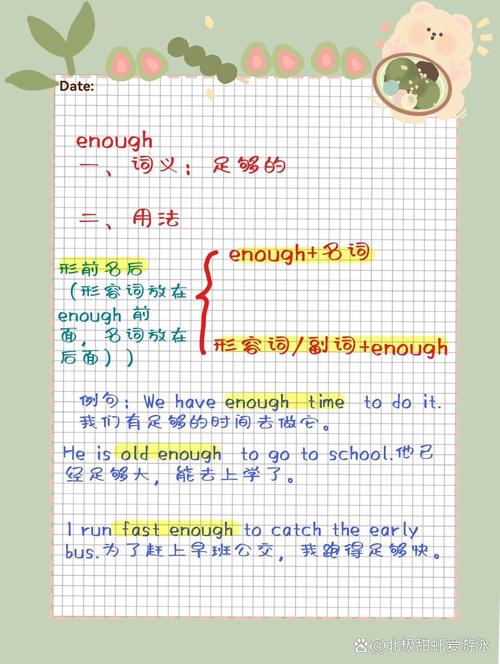 Date:
enough
一、词义：足够的
二、用法
enough+名词
形前名后
（形容词放在
enough 前
面，名词放在
后面））
形容词/副词+enough
例句：We have enough time to do it.
我们有足够的时间去做它。
He is old enough to go to school.他已
经足够大，能去上学了。
I run fast enough to catch the early
bus.为了赶上早班公交，我跑得足够快。
@北极甜虾爱游泳